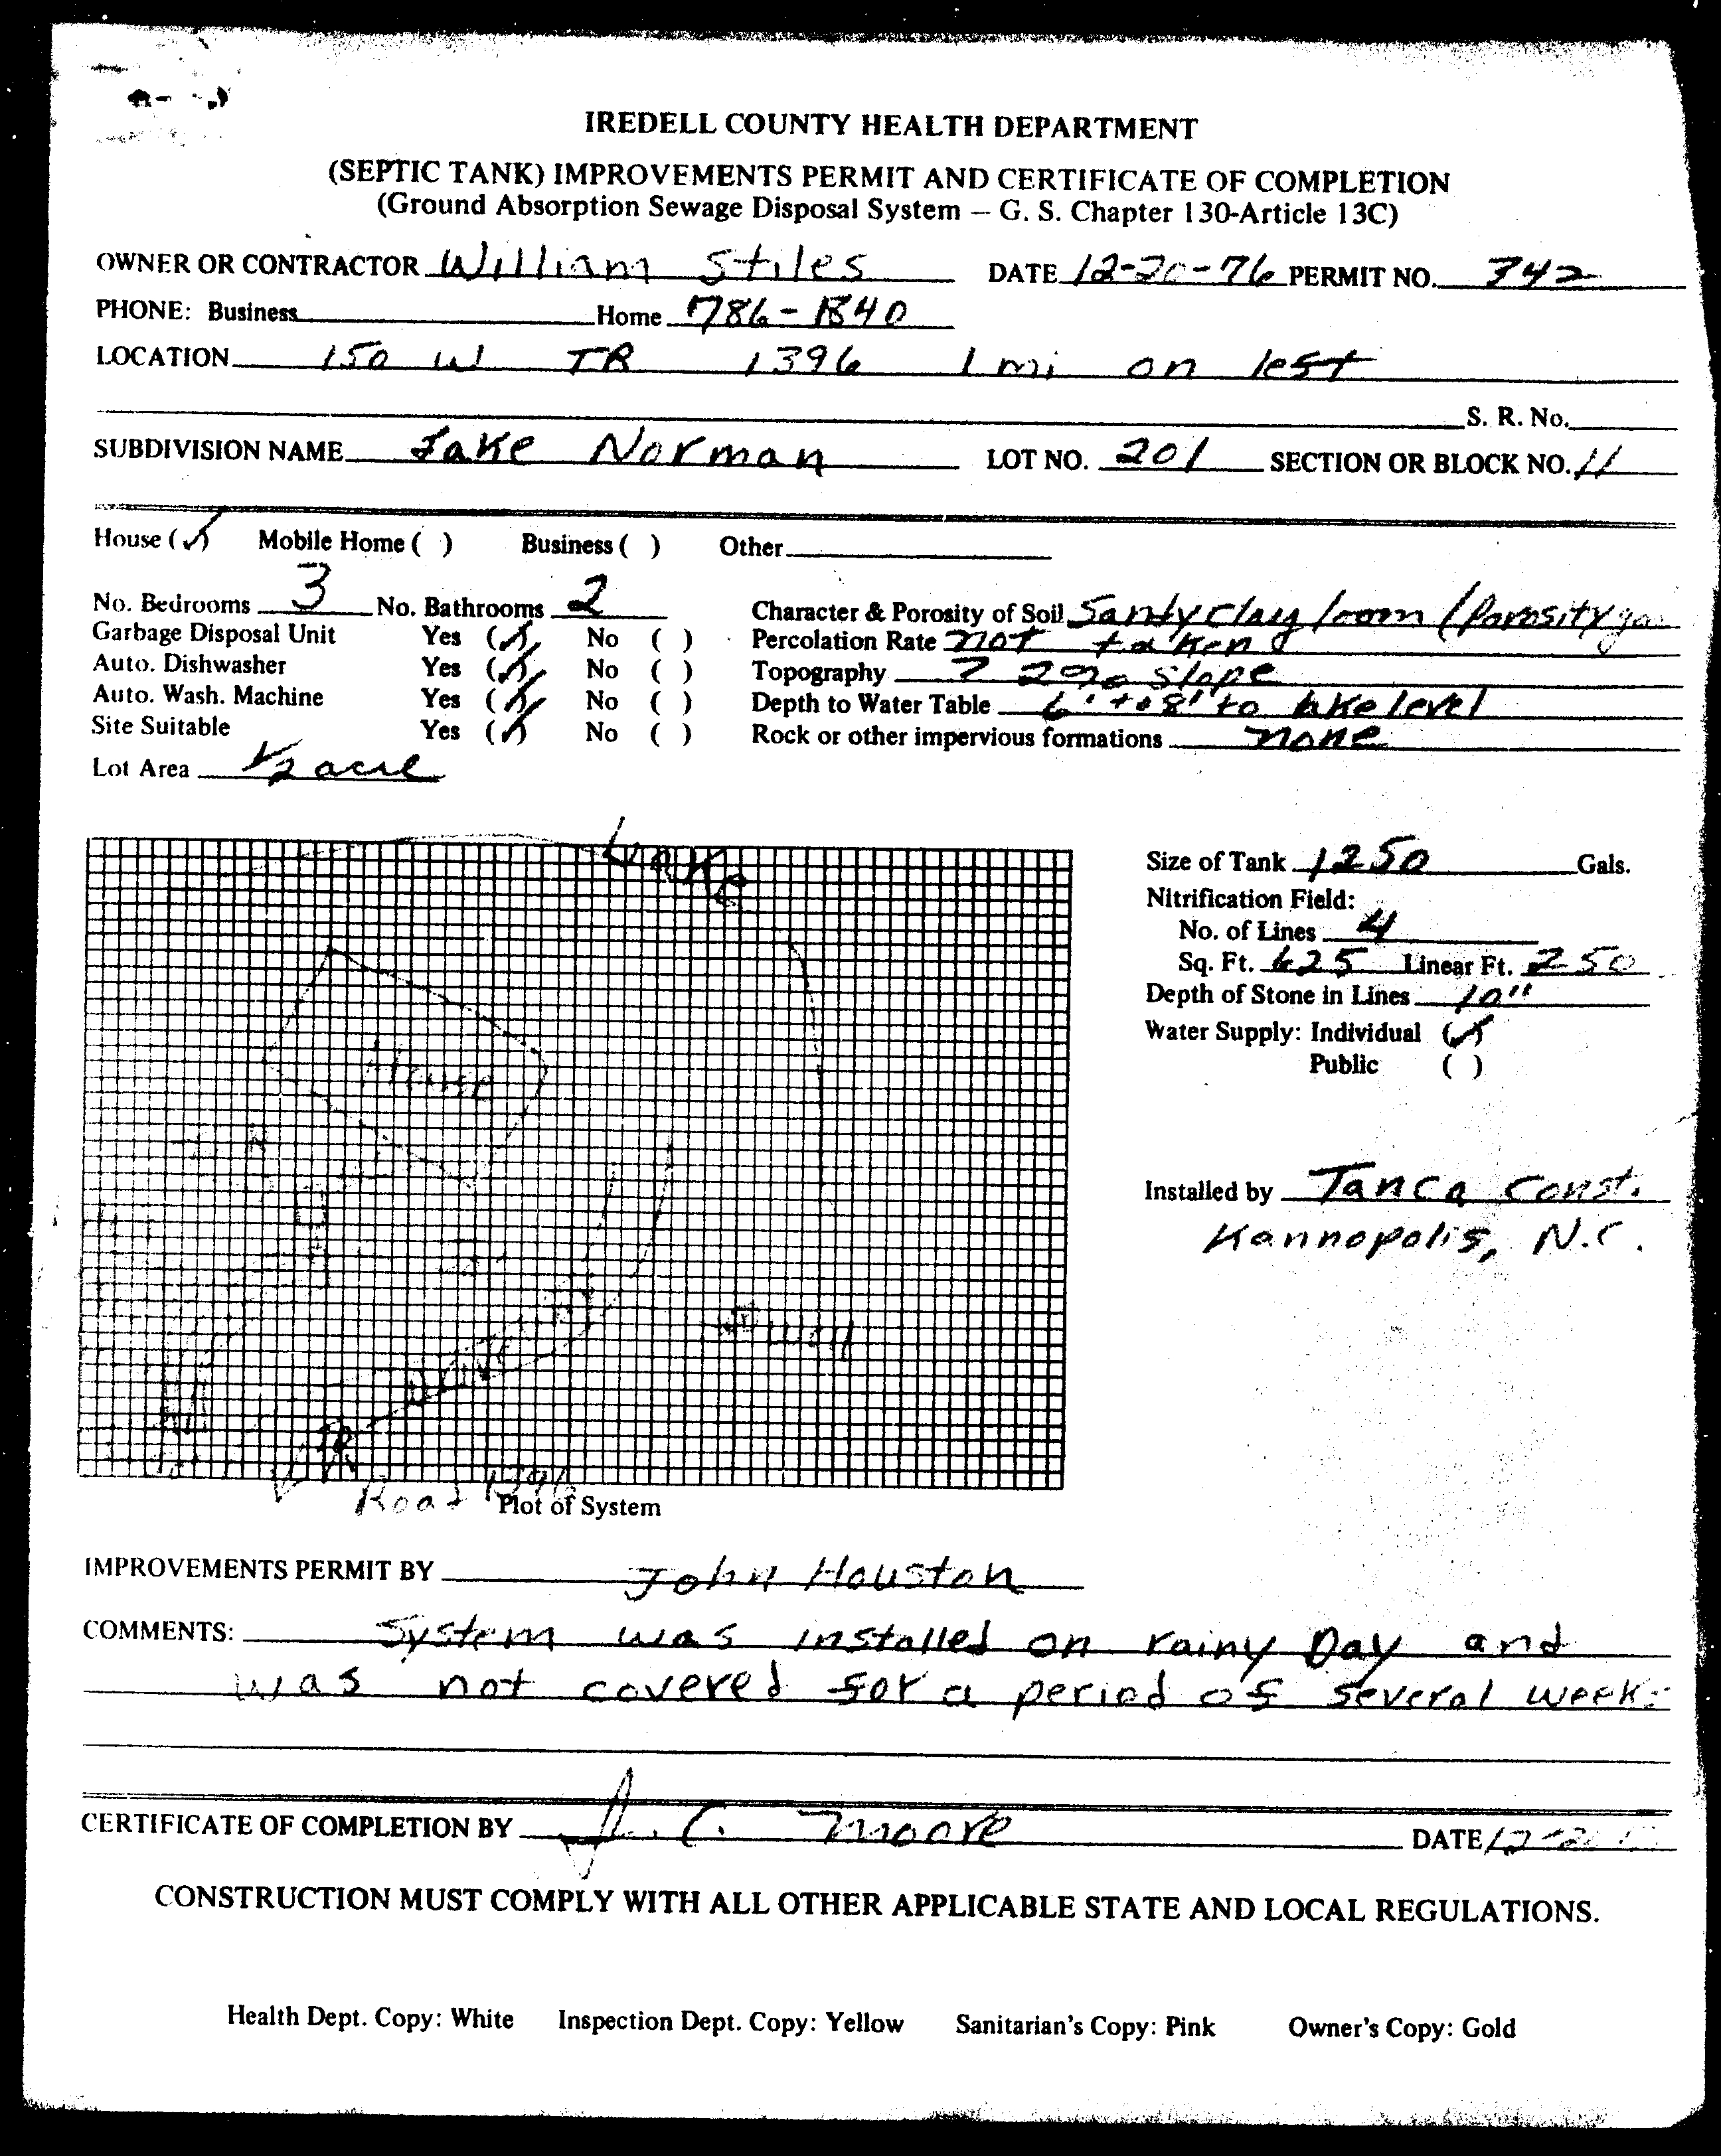 IREDELL COUNTY HEALTH DEPARTMENT
(SEPTIC TANK) IMPROVEMENTS PERMIT AND CERTIFICATE OF COMPLETION
(Ground Absorption Sewage Disposal System — G. S. Chapter 130-Article 13C)
OWNER OR CONTRACTOR William Stiles DATE 12-20-76 PERMIT NO. 342
PHONE: Business Home 786-1840
LOCATION 150 W TR 1396 1 mi on left
S. R. No.
SUBDIVISION NAME Lake Norman LOT NO. 201 SECTION OR BLOCK NO. 11
House (✓) Mobile Home ( ) Business ( ) Other
No. Bedrooms 3 No. Bathrooms 2 Character & Porosity of Soil Sandy Clay loom (Porosity
Garbage Disposal Unit Yes (✓) No ( ) Percolation Rate not taken
Auto. Dishwasher Yes (✓) No ( ) Topography 2% slope
Auto. Wash. Machine Yes (✓) No ( ) Depth to Water Table 6' to 8' to lake level
Site Suitable Yes (✓) No ( ) Rock or other impervious formations none
Lot Area 1/2 acre
Lake
Size of Tank 1250 Gals.
Nitrification Field:
No. of Lines 4
Sq. Ft. 625 Linear Ft. 250
Depth of Stone in Lines 10"
Water Supply: Individual (✓)
Public ( )
House
Installed by Tanca Const.
Kannopolis, N.C.
Well
Drive
TR
Road 1396
Plot of System
IMPROVEMENTS PERMIT BY John Houston
COMMENTS: System was installed on rainy Day and
was not covered for a period of several weeks
CERTIFICATE OF COMPLETION BY J. C. Moore DATE 12-2
CONSTRUCTION MUST COMPLY WITH ALL OTHER APPLICABLE STATE AND LOCAL REGULATIONS.
Health Dept. Copy: White Inspection Dept. Copy: Yellow Sanitarian's Copy: Pink Owner's Copy: Gold